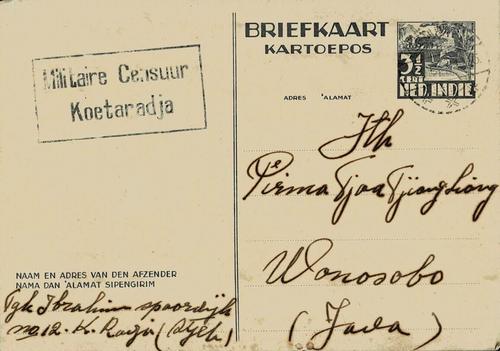 Militaire Censuur
Koetaradja
BRIEFKAART
KARTOEPOS
3½
CENT
NED. INDIE
ADRES 'ALAMAT
Jth
Firma Tjoa Tjiong
Wonosobo
(Java)
NAAM EN ADRES VAN DEN AFZENDER
NAMA DAN 'ALAMAT SIPENGIRIM
Tgk Ibrahim spoordijk
no 12. K. Radja (Atjeh)